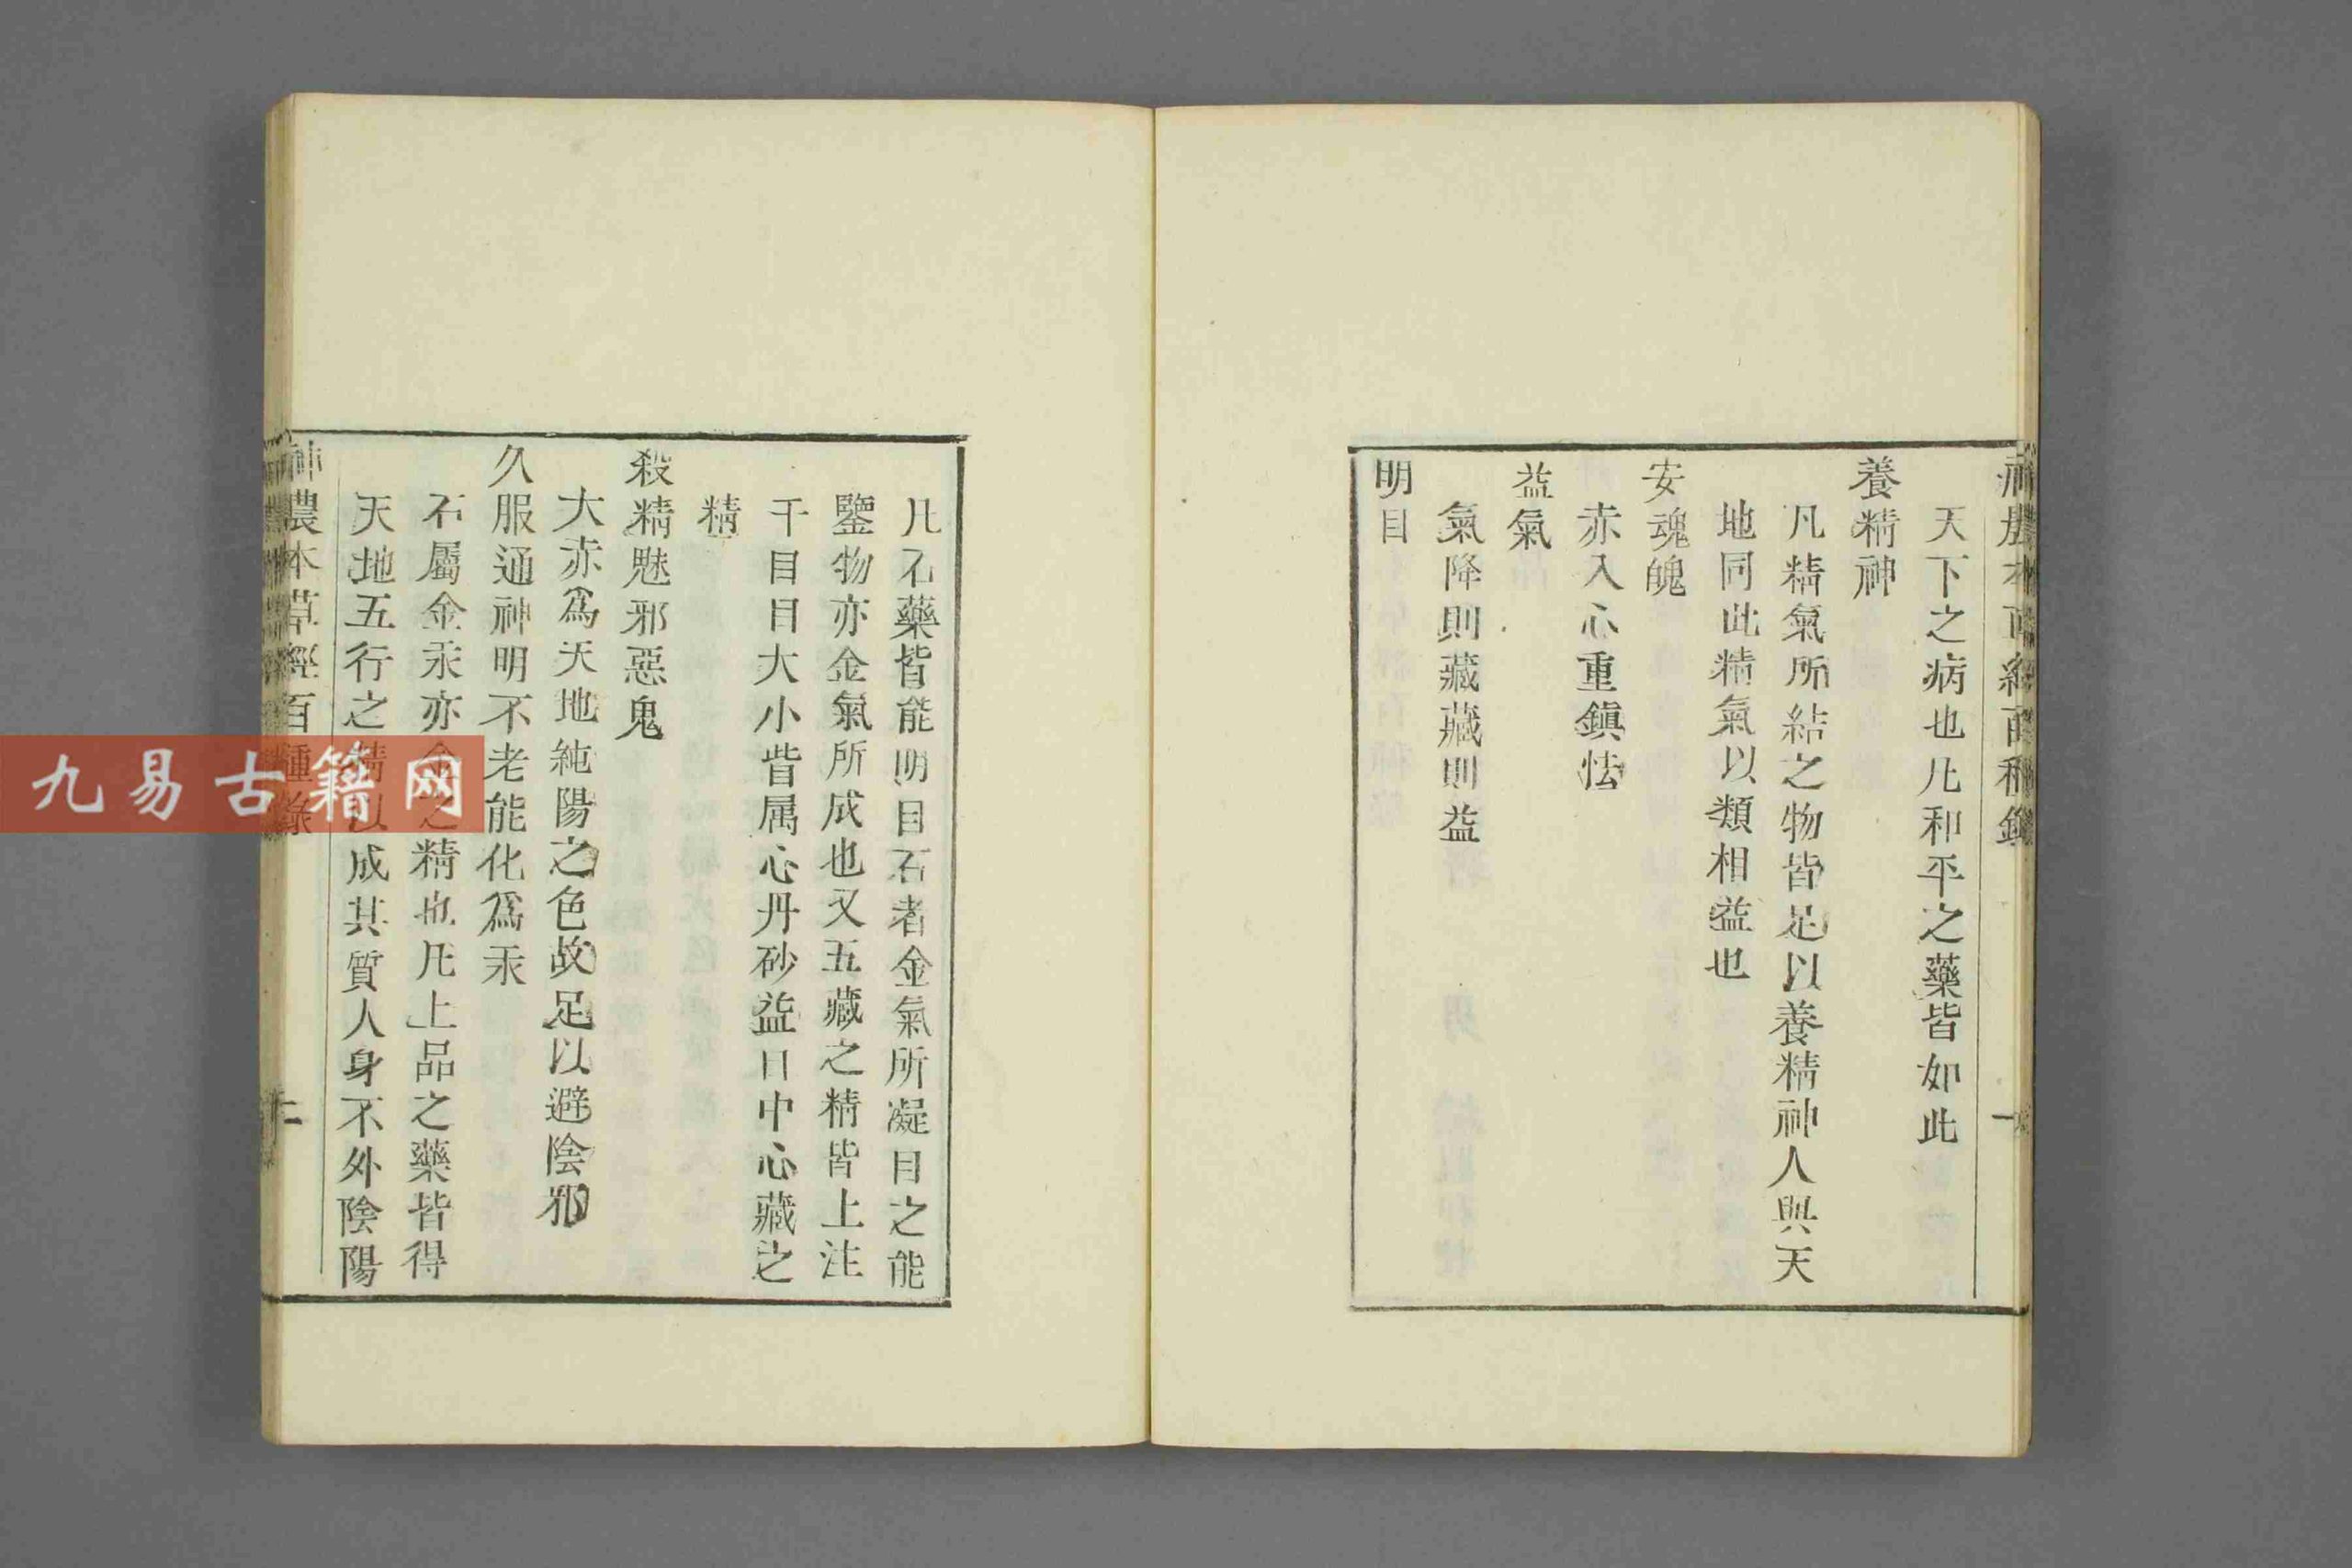 神農本草經百種錄
天下之病也凡和平之藥皆如此
養精神
凡精氣所結之物皆足以養精神人與天
地同此精氣以類相益也
安魂魄
赤入心重鎮怯
益氣
氣降則藏藏則益
明目
一
凡石藥皆能明目石者金氣所凝目之能
鑒物亦金氣所成也又五藏之精皆上注
于目目大小眥属心丹砂益目中心藏之
精
殺精魅邪惡鬼
大赤爲天地純陽之色故足以避陰邪
久服通神明不老能化爲汞
石屬金汞亦金之精也凡上品之藥皆得
天地五行之精以成其質人身不外陰陽
神農本草經百種錄
二
九易古籍网